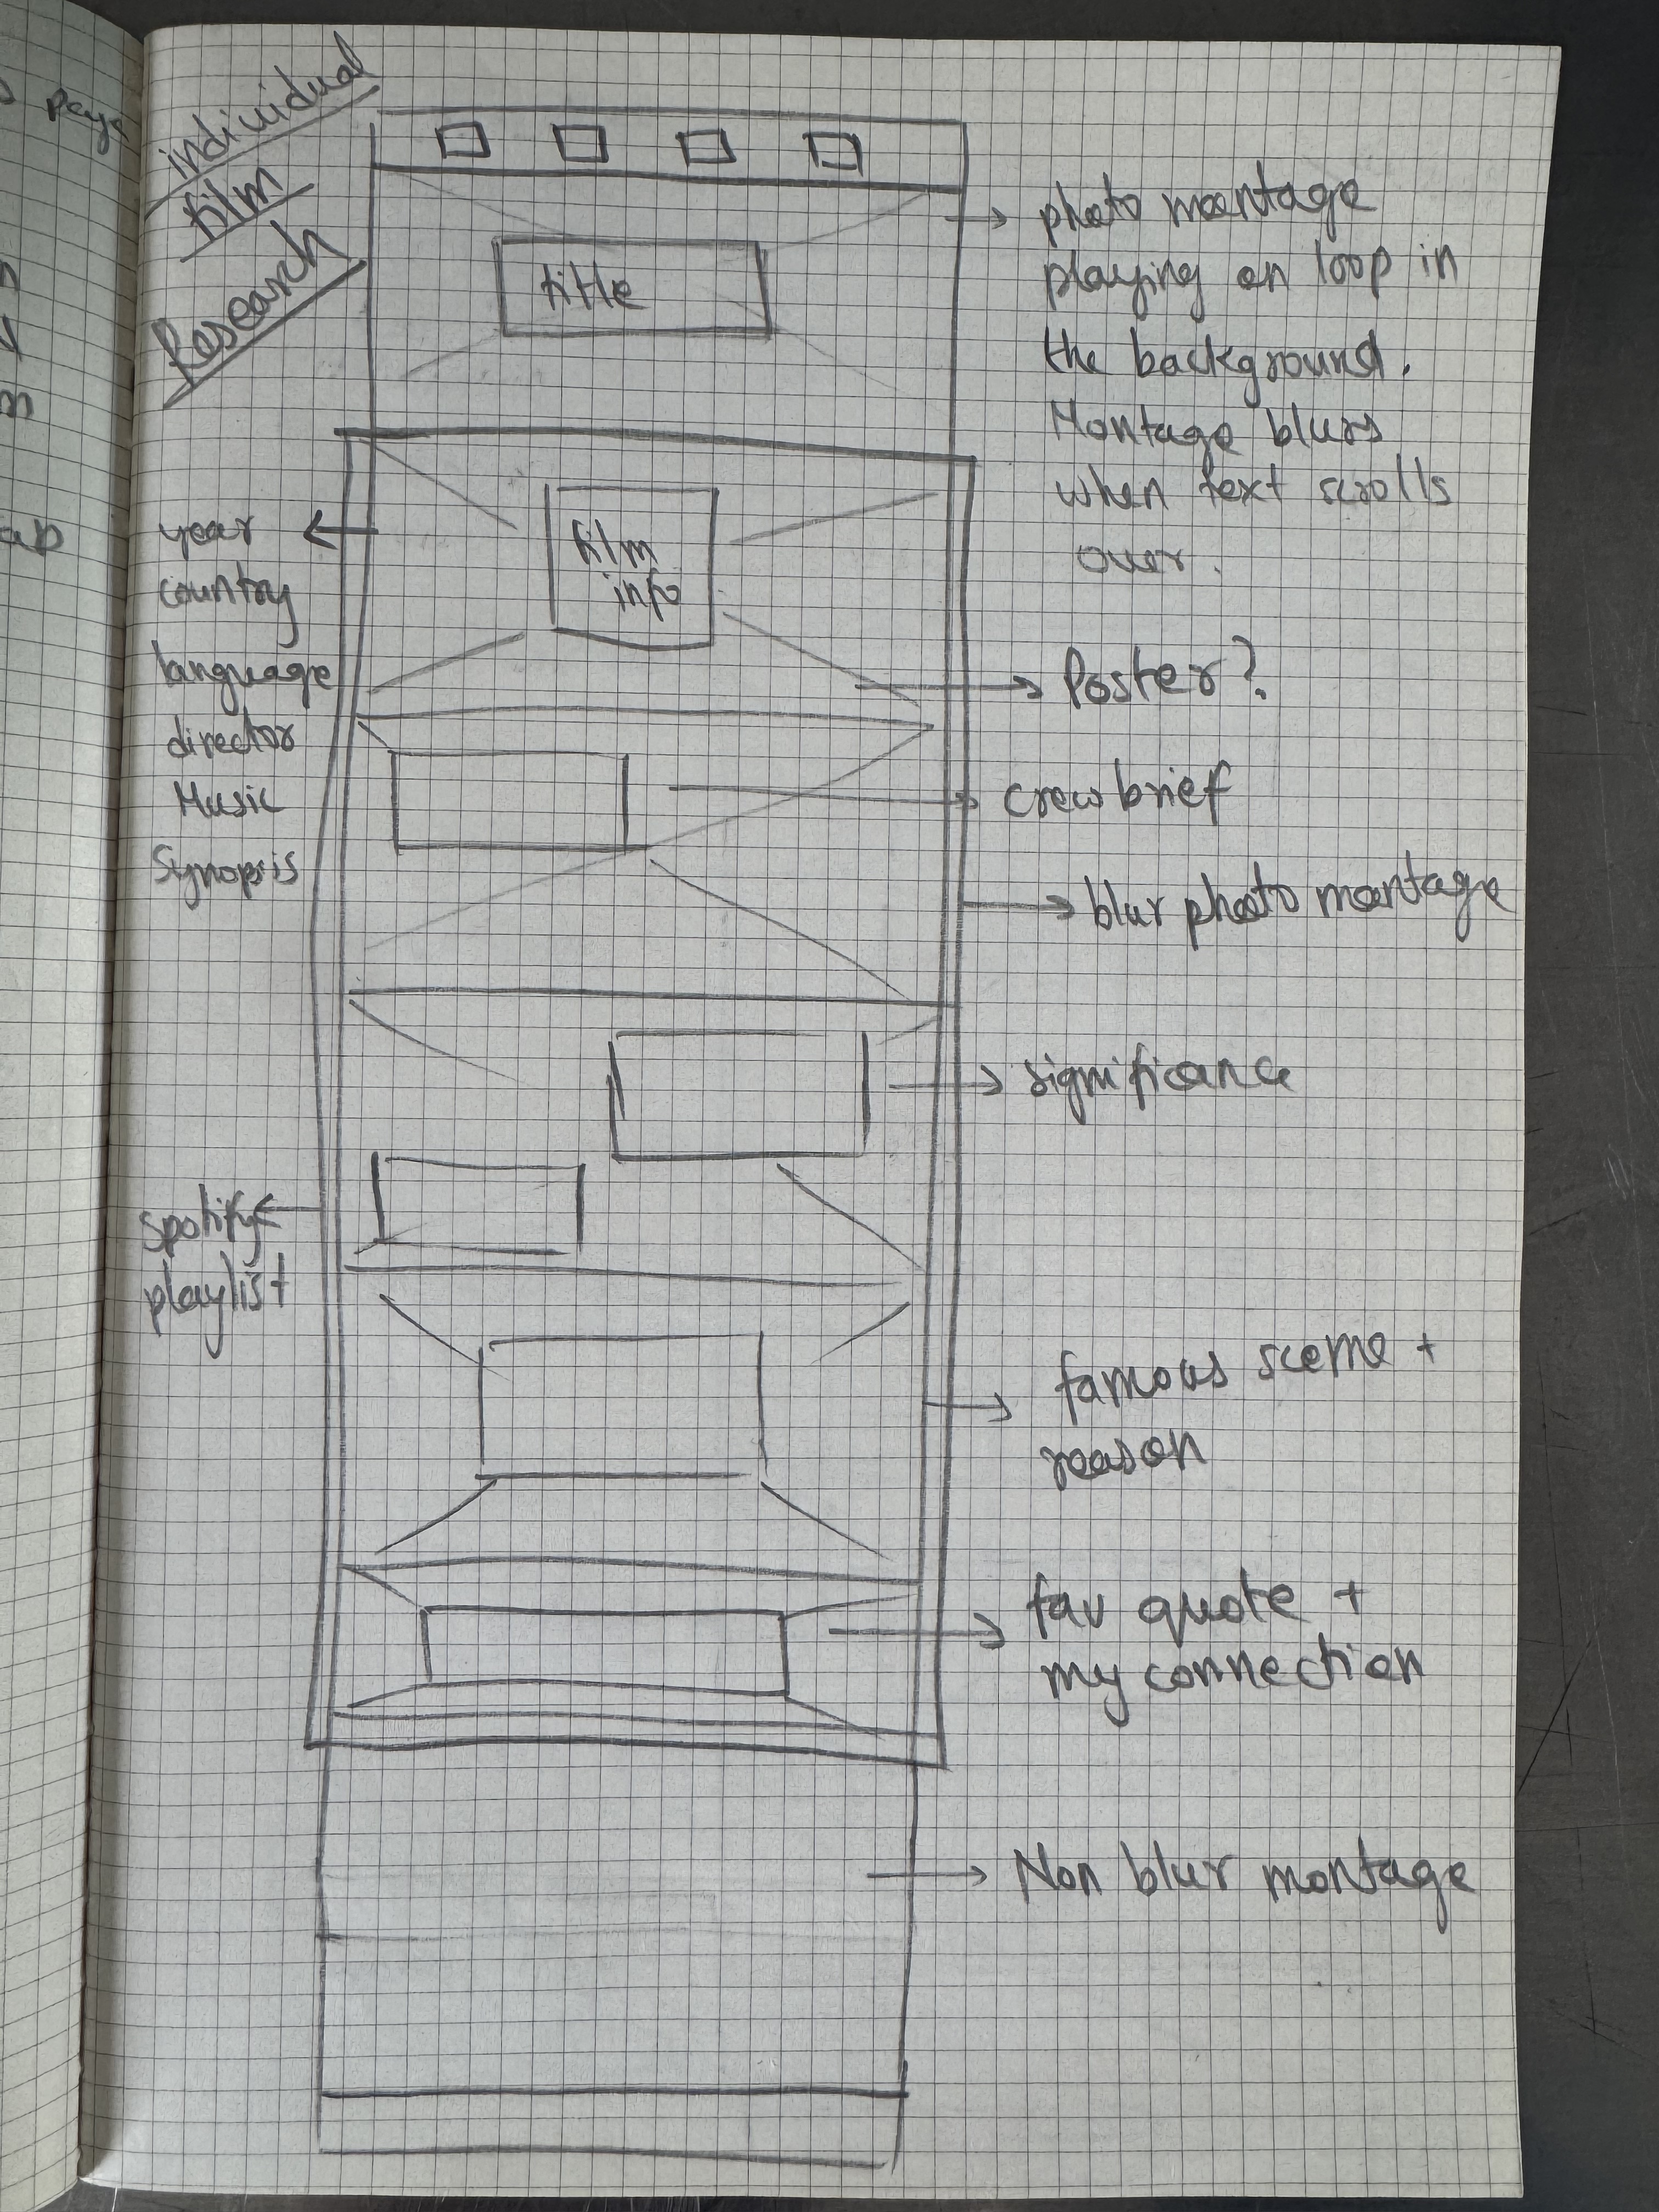 individual
film
Research
title
photo montage
playing on loop in
the background.
Montage blurs
when text scrolls
over.
film
info
year
country
language
director
Music
Synopsis
Poster?
crew brief
blur photo montage
significance
spotify
playlist
famous scene +
reason
fav quote +
my connection
Non blur montage
page